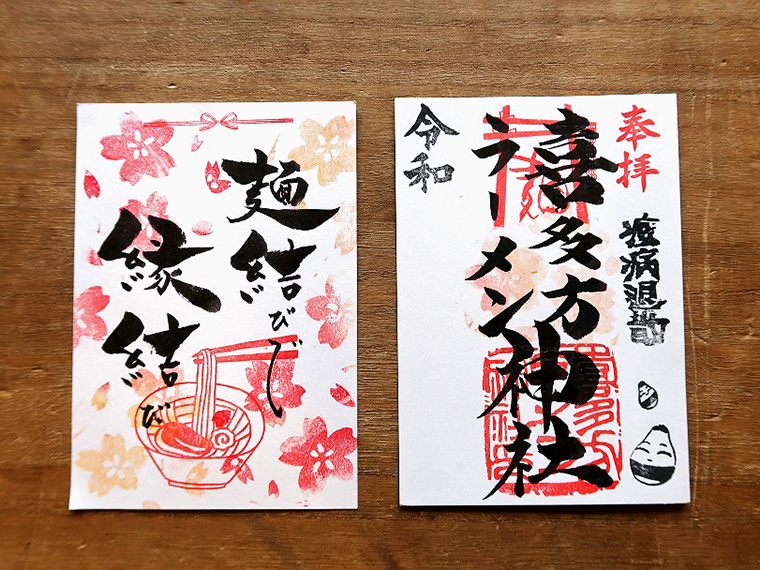 麺結びで
縁結び
奉拝
疫病退散
喜多方
ラーメン
神社
令和